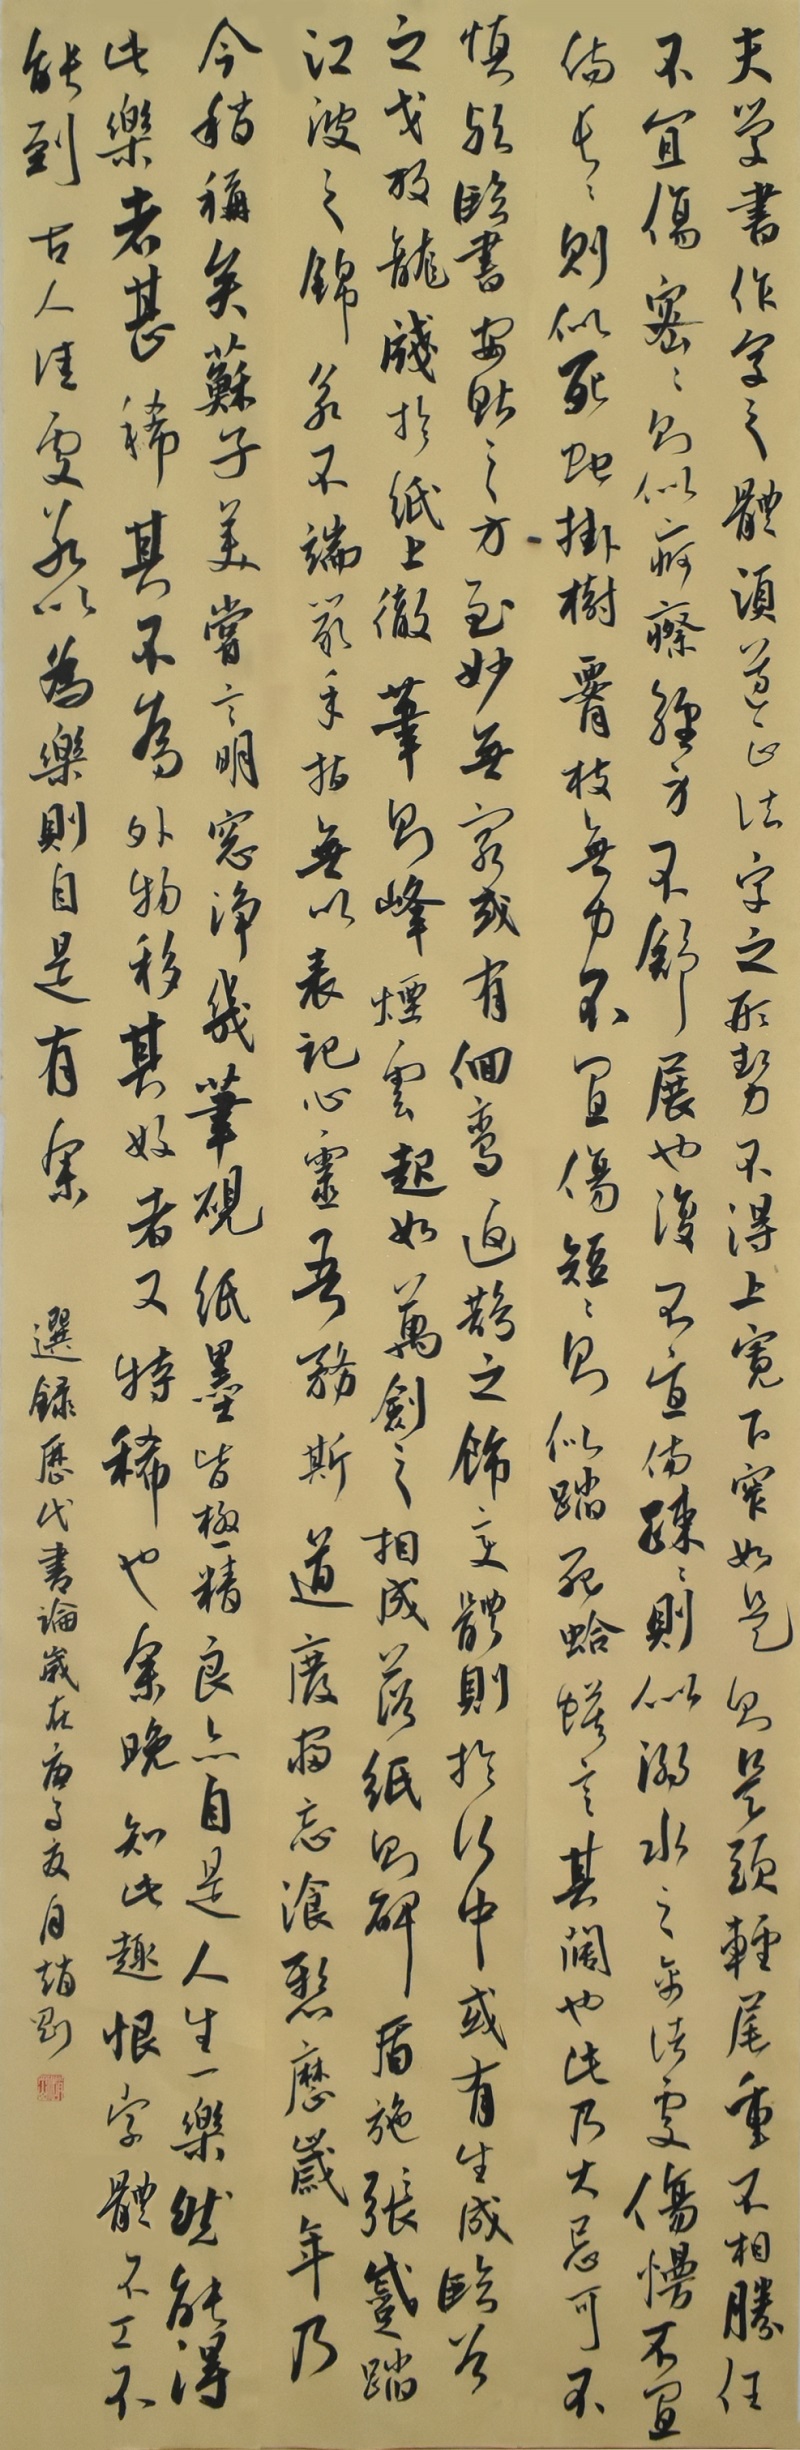 夫學書作字之體須遵正法字之形勢不得上寬下窄如是則是頭輕尾重不相勝任
不宜傷密密則似疴瘵纏身不舒展也復不宜傷疎疎則似溺水之禽諸處傷慢不宜
傷長長則似死蛇掛樹腰枝無力不宜傷短短則似踏死蛤蟆言其闊也此乃大忌可不
慎歟臨書安帖之方至妙無窮或有回鸞返鵲之飾變體則於行中或有生成臨谷
之戈放龍牋於紙上徹筆則峰煙雲起如萬劍之相成落紙則碑盾施張蹙踏
江波之錦若不端嚴手指無以表記心靈吾務斯道廢寢忘飡懸歷歲年乃
今稍稱矣蘇子美嘗言明窓淨幾筆硯紙墨皆極精良亦自是人生一樂然能得
此樂者甚稀其不為外物移其好者又特稀也余晚知此趣恨字體不工不
能到古人佳處若以為樂則自是有余
選錄歷代書論歲在庚子友月趙剛